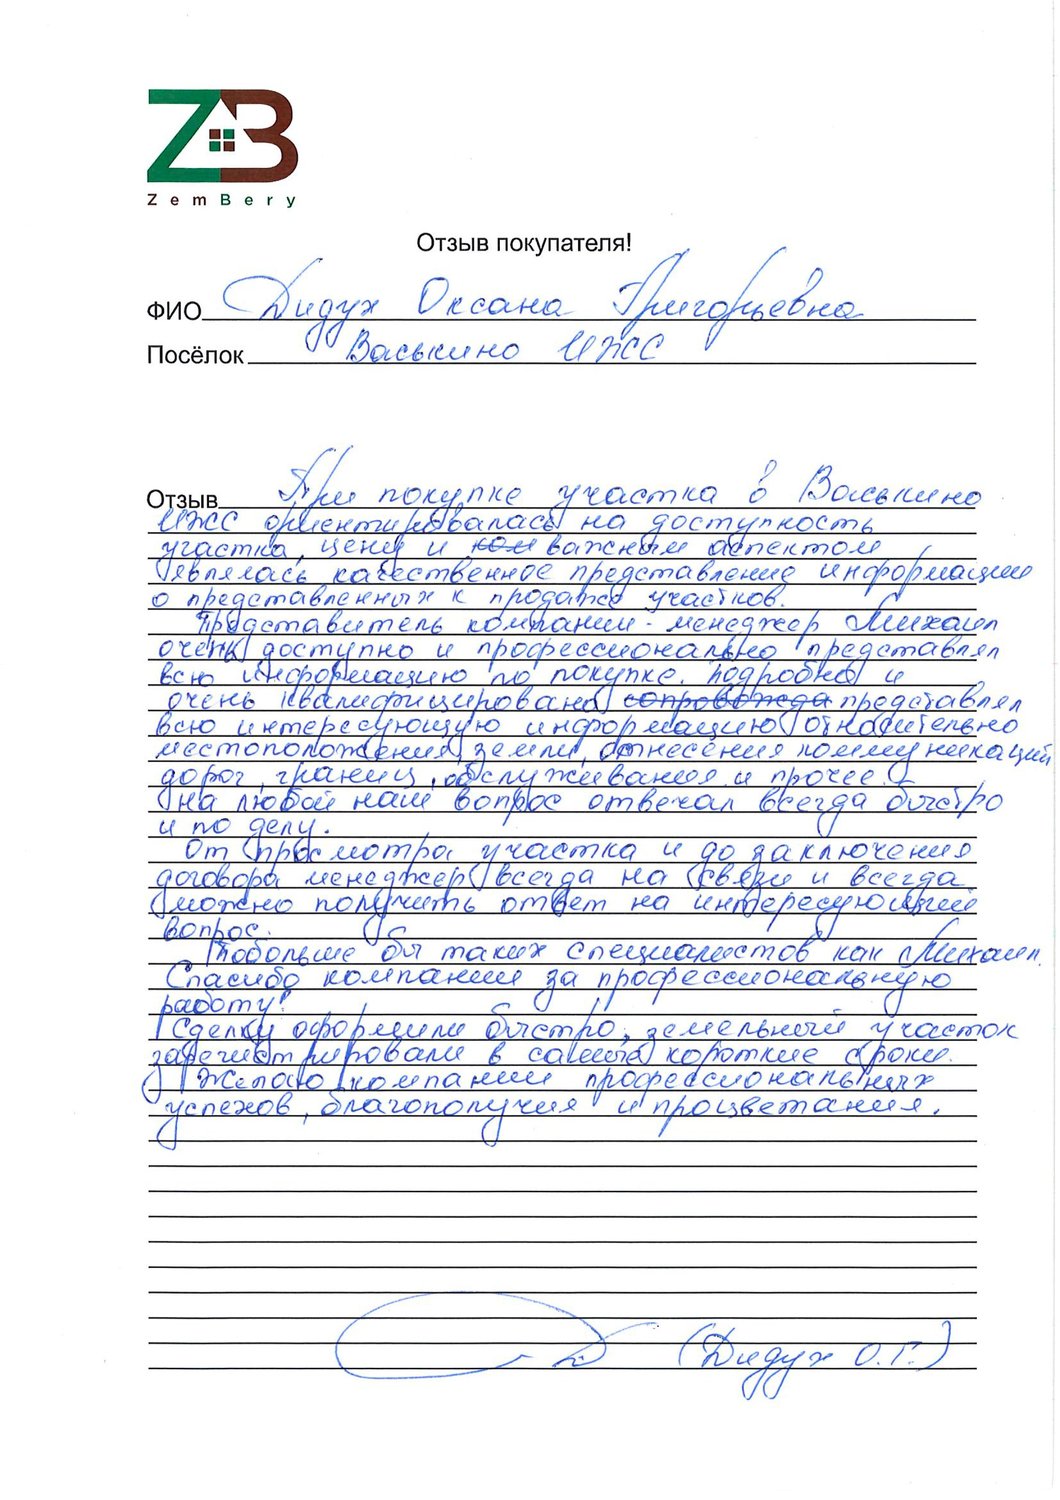 ZB
ZemBery
Отзыв покупателя!
ФИО Дидух Оксана Григорьевна
Посёлок Васькино ИЖС
Отзыв При покупке участка в Васькино
ИЖС ориентировалась на доступность
участка, цену и важным аспектом
являлась качественное представление информации
о представленных к продаже участков.
Представитель компании - менеджер Михаил
очень доступно и профессионально представлял
всю информацию по покупке. Подробно и
очень квалифицировано представлял
всю интересующую информацию относительно
местоположения земли, отнесения коммуникаций
дорог, границ, обслуживания и прочее.
На любой наш вопрос отвечал всегда быстро
и по делу.
От просмотра участка и до заключения
договора менеджер всегда на связи и всегда
можно получить ответ на интересующий
вопрос.
Побольше бы таких специалистов как Михаил.
Спасибо компании за профессиональную
работу!
Сделку оформили быстро, земельный участок
зарегистрировали в самые короткие сроки.
Желаю компании профессиональных
успехов, благополучия и процветания.
(Дидух О.Г.)